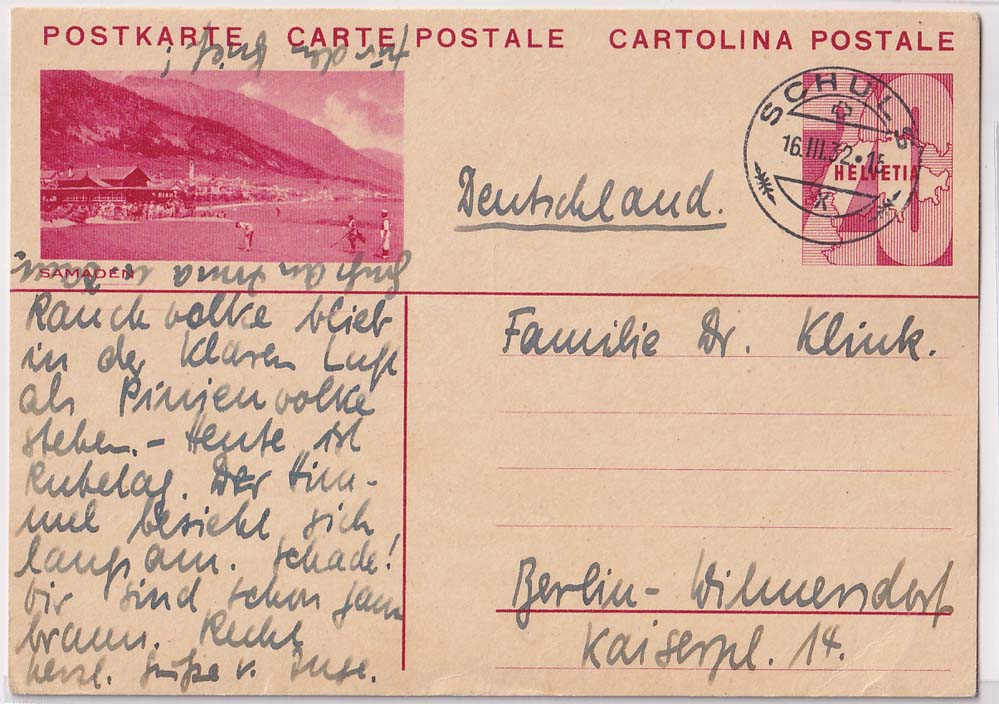 POSTKARTE CARTE POSTALE CARTOLINA POSTALE
für den
SCHULS
16.III.32•15
HELVETIA
K
Deutschland.
SAMADEN
Rauchwolke blieb
in der klaren Luft
als Pinienwolke
stehen. – Heute ist
Ruhetag. Der Him-
mel bezieht sich
langsam. Schade!
Wir sind schon ganz
braun. Recht
herzl. Grüße v. Inge.
Familie Dr. Klink.
Berlin-Wilmersdorf
Kaiserpl. 14.